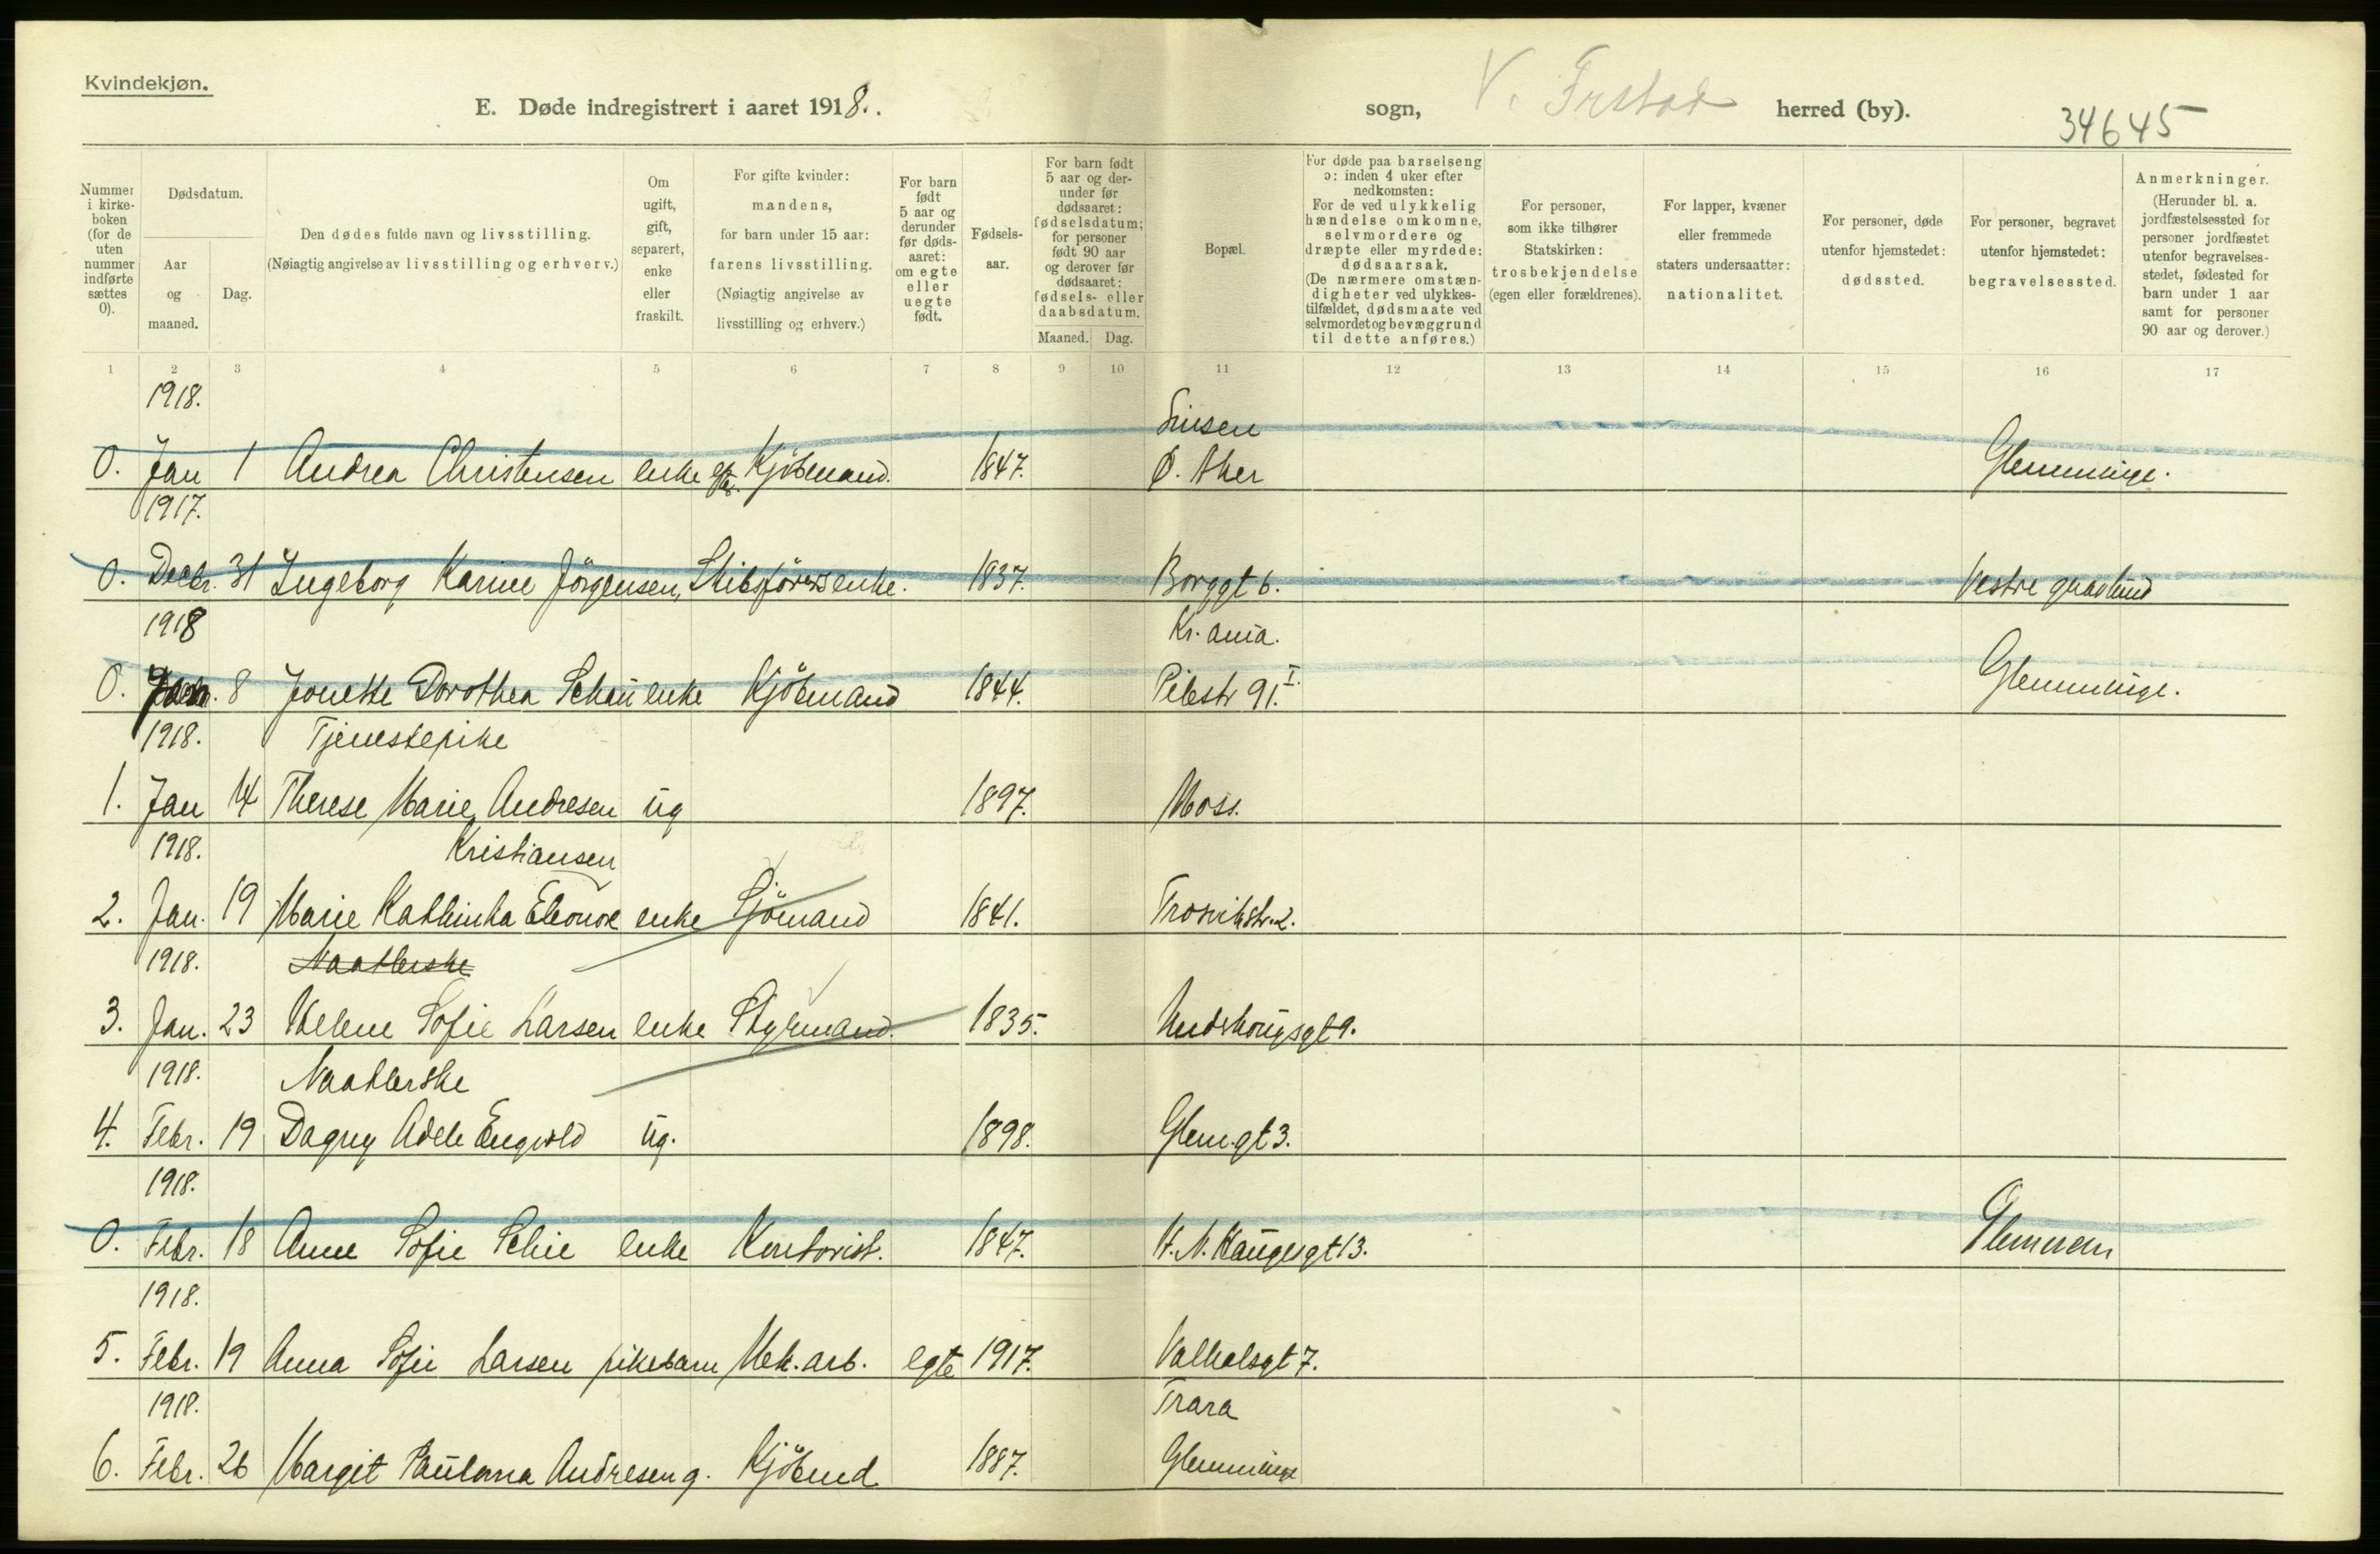 Kvindekjøn.
E. Døde indregistrert i aaret 1918.. sogn, V. Frstad herred (by). 34645
Nummer i kirkeboken (for de uten nummer indførte sættes 0).
Dødsdatum.
Aar og maaned.
Dag.
Den dødes fulde navn og livsstilling.
(Nøiagtig angivelse av livsstilling og erhverv.)
Om ugift, gift, separert, enke eller fraskilt.
For gifte kvinder: mandens, for barn under 15 aar: farens livsstilling. (Nøiagtig angivelse av livsstilling og erhverv.)
For barn født 5 aar og derunder før dødsaaret: om egte eller uegte født.
Fødselsaar.
For barn født 5 aar og derunder før dødsaaret: fødselsdatum; for personer født 90 aar og derover før dødsaaret: fødsels- eller daabsdatum.
Maaned. Dag.
Bopæl.
For døde paa barselseng ɔ: inden 4 uker efter nedkomsten: For de ved ulykkelig hændelse omkomne, selvmordere og dræpte eller myrdede: dødsaarsak. (De nærmere omstændigheter ved ulykkestilfældet, dødsmaate ved selvmordet og bevæggrund til dette anføres.)
For personer, som ikke tilhører Statskirken: trosbekjendelse (egen eller forældrenes).
For lapper, kvæner eller fremmede staters undersaatter: nationalitet.
For personer, døde utenfor hjemstedet: dødssted.
For personer, begravet utenfor hjemstedet: begravelsessted.
Anmerkninger. (Herunder bl. a. jordfæstelsessted for personer jordfæstet utenfor begravelsesstedet, fødested for barn under 1 aar samt for personer 90 aar og derover.)
1 2 3 4 5 6 7 8 9 10 11 12 13 14 15 16 17
1918. Sinsen
0. Jan 1 Andrea Christensen enke eft. Kjöbmand. 1847. Ø. Aker Glemminge.
1917.
0. Decbr. 31 Ingeborg Karine Jörgensen, Skibsförersenke. 1837. Borggt 6. Vestre gravlund
1918 Kr.ania.
0. Jan. 8 Jonette Dorothea Schau enke Kjöbmand 1844. Pilestr 91.I. Glemminge.
1918. Tjenestepike
1. Jan 14 Therese Marie Andresen ug 1897. Moss.
1918. Kristiansen
2. Jan. 19 Marie Kathinka Eleonore enke Sjömand 1841. Trosvikstr. 2.
1918. Naatlerske
3. Jan. 23 Helene Sofie Larsen enke Styrmand. 1835. Hudskougsgt 9.
1918. Naatlerske
4. Febr. 19 Dagny Adele Engvold ug. 1898. Glem.gt 3.
1918.
0. Febr. 18 Anne Sofie Schie enke Kontorist. 1847. H. N. Haugesgt 13. Glemmen
1918.
5. Febr. 19 Anna Sofie Larsen pikebarn Mek. arb. egte 1917. Valhalsgt 7.
1918. Trara
6. Febr. 26 Margit Paulona Andresen g. Kjöbmd 1887. Glemminge